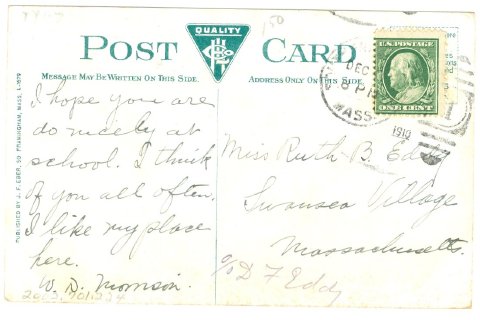 QUALITY
POST CARD
MESSAGE MAY BE WRITTEN ON THIS SIDE.
ADDRESS ONLY ON THIS SIDE.
I hope you are
do nicely at
school. I think
of you all often.
I like my place
here.
W. D. Morrison.
Miss Ruth B. Eddy
Swansea Village
Massachusetts.
c/o D F Eddy
U.S. POSTAGE
ONE CENT
DEC
8 PM
MASS
1910
PUBLISHED BY J. F. EBER, SO. FRAMINGHAM, MASS.
150